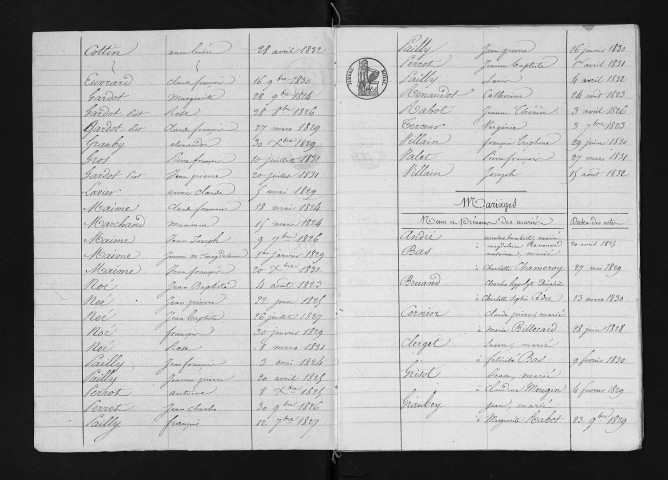 Cottin anne louise 28 avril 1832
Euvrard claude françois 16 9bre 1830
Gardot Marguerite 28 9bre 1824
Gardot Rose 28 8bre 1826
Gardot claude françois 27 mars 1829
Grauby alexandre 30 Xbre 1829
Gros Pierre françois 10 juillet 1831
Gardot Jean pierre 20 juillet 1831
anne claude 6 mai 1829
Maime claude francois 18 mai 1824
Marchand 15 mars 1824
Maime Jean Joseph 9 7bre 1826
Maime janvier 1829
Maime Jean françois 20 Xbre 1831
Noé Jean Baptiste 4 août 1823
Noé Jean pierre 22 juin 1825
Noé Jean Baptiste 26 juillet 1827
Noé françois 30 janvier 1829
Noé Rose 8 mars 1831
Pailly Jean françois 3 mai 1824
Pailly Jeanne pierre 20 avril 1825
Perrot antoine 8 Xbre 1825
Perrot Jean charles 30 9bre 1826
Pailly françois 12 7bre 1827
Pailly Jean pierre 16 janvier 1830
Perrot Jeanne Baptiste 1er avril 1831
Pailly 4 avril 1832
Renaudot Catherine 24 août 1823
Rabot Jeanne Thérèse 3 avril 1826
Virginie 3 7bre 1823
Villain 29 juin 1830
Valet Pierre françois 27 mars 1831
Villain Joseph 15 août 1832
Mariages
Noms et Prénoms des mariés Date des actes
André
20 avril 1825
Bas
à Charlotte Chameroy 27 mai 1829
Bruand Charles hippolyte
à Charlotte Sophie 13 mars 1830
Cornier claude pierre, marié
à marie Billecard 28 juin 1828
Clerget marié
à félicité Bas 9 février 1830
marié
à claudine Mougin 4 février 1829
Grauby Jean, marié
à Marguerite Rabot 23 9bre 1829